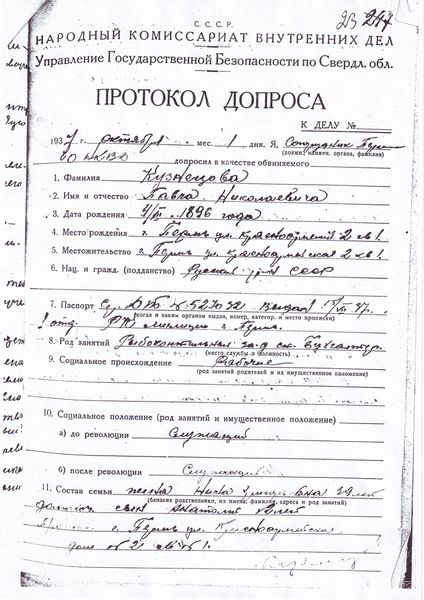 23 247
С. С. С. Р.
НАРОДНЫЙ КОМИССАРИАТ ВНУТРЕННИХ ДЕЛ
Управление Государственной Безопасности по Свердл. обл.
ПРОТОКОЛ ДОПРОСА
К ДЕЛУ №
1937 г. октября мес. 1 дня. Я, Сотрудник
(должн., наимен. органа, фамилия)
ГО НКВД допросил в качестве обвиняемого
1. Фамилия Кузнецова
2. Имя и отчество Павла Николаевича
3. Дата рождения 1896 года
4. Место рождения г. Пермь ул. Красноармейская 2 кв 1
5. Местожительство г. Пермь ул. Красноармейская 2 кв 1.
6. Нац. и гражд. (подданство) Русский гр-н СССР
7. Паспорт № 527032 выдан
(когда и каким органом выдан, номер, категор. и место прописки)
1 отд. милиции г. Пермь
8. Род занятий Бухгалтер
(место службы и должность)
9. Социальное происхождение Рабочие
(род занятий родителей и их имущественное положение)
10. Социальное положение (род занятий и имущественное положение)
а) до революции Служащий
б) после революции Служащий
11. Состав семьи жена Нина 32 лет
(близкие родственники, их имена, фамилии, адреса и род занятий)
сын Анатолий
г. Пермь ул. Красноармейская
дом № 2 кв № 1.